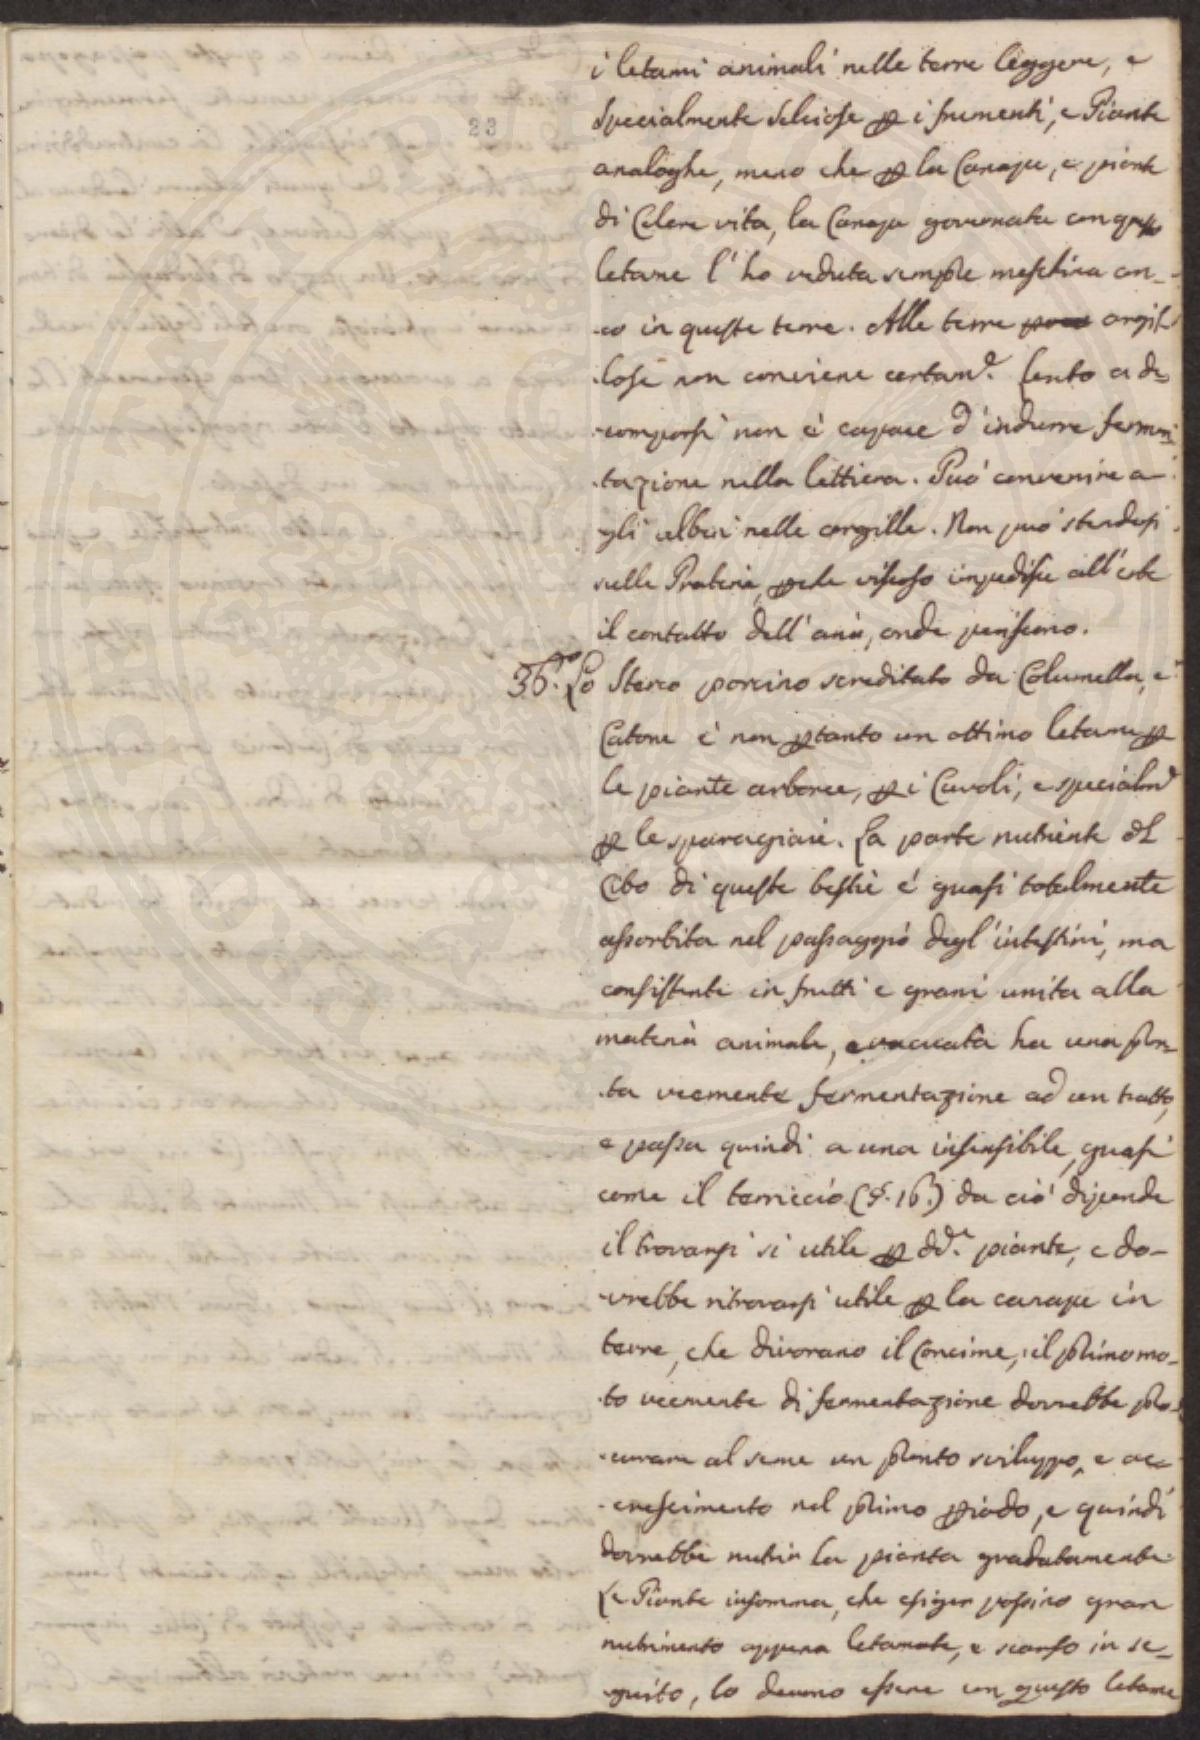 23
i letami animali nelle terre leggere, e
specialmente selciose ꝑ i frumenti, e Piante
analoghe, meno che ꝑ la Canapa, e piante
di Celere vita, la Canapa governata con questo
letame l'ho veduta sempre meschina an-
-co in queste terre. Alle terre argil-
-lose non conviene certamᵉ. Lento a de-
-comporsi non è capace d'indurre fermen-
-tazione nella lettiera. Può convenire a-
gli alberi nelle argille. Non può stendersi
nelle Praterie, ꝑche viscoso impedisce all'erbe
il contatto dell'aria, onde periscono.
36.° Lo Sterco porcino screditato da Columella, e
Catone è non ꝑtanto un ottimo letame ꝑ
le piante arboree, ꝑ i Cavoli, e specialmᵉ
ꝑ le sparagiaie. La parte nutriente del
Cibo di queste bestie è quasi totalmente
assorbita nel passaggio degl'intestini, ma
consistente in frutti e grani unita alla
materia animale, evacuata ha una pron-
-ta veemente fermentazione ad un tratto,
e passa quindi a una insensibile, quasi
come il terriccio (§. 16.) da ciò dipende
il trovarsi si utile ꝑ ddᵉ. piante, e do-
-vrebbe ritrovarsi utile ꝑ la canapa in
terre, che divorano il Concime, il primo mo-
-to veemente di fermentazione dovrebbe pro-
-curare al seme un pronto sviluppo, e ac-
-crescimento nel primo ꝑiodo, e quindi
dovrebbe nutrir la pianta gradatamente.
Le Piante insomma, che esiger possino gran
nutrimento appena letamate, e scarso in se-
-guito, lo devono essere con questo letame